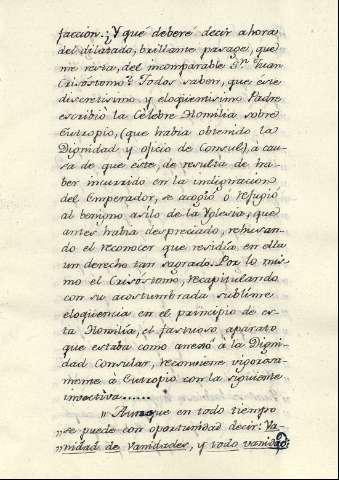 faccion. ¿Y què deberè decir ahora
del dilatado, brillante pasage, que
me resta, del incomparable Sn. Juan
Crisòstomo? Todos saben, que èste
discretisimo y eloqüentisimo Padre
escribiò la Cèlebre Homilia sobre
Eutropio, (que habia obtenido la
Dignidad y oficio de Consul), à cau-
sa de que èste, de resulta de ha-
ber incurrido en la indignacion
del Emperador, se acogiò ò refugiò
al benigno asilo de la Yglesia, que
antes habia despreciado, rehusan-
do el reconocer que residia en ella
un derecho tan sagrado. Por lo mis-
mo el Crisòstomo, recapitulando
con su acostumbrada sublime
eloqüencia en el principio de es-
ta Homilia, el fastuoso aparato
que estaba como anexô à la Digni-
dad Consular, reconviene vigorosa-
mente à Eutropio con la siguiente
invectiva......
„Aunque en todo tiempo
„se puede con oportunidad decir: Va-
„nidad de Vanidades, y todo vanidad